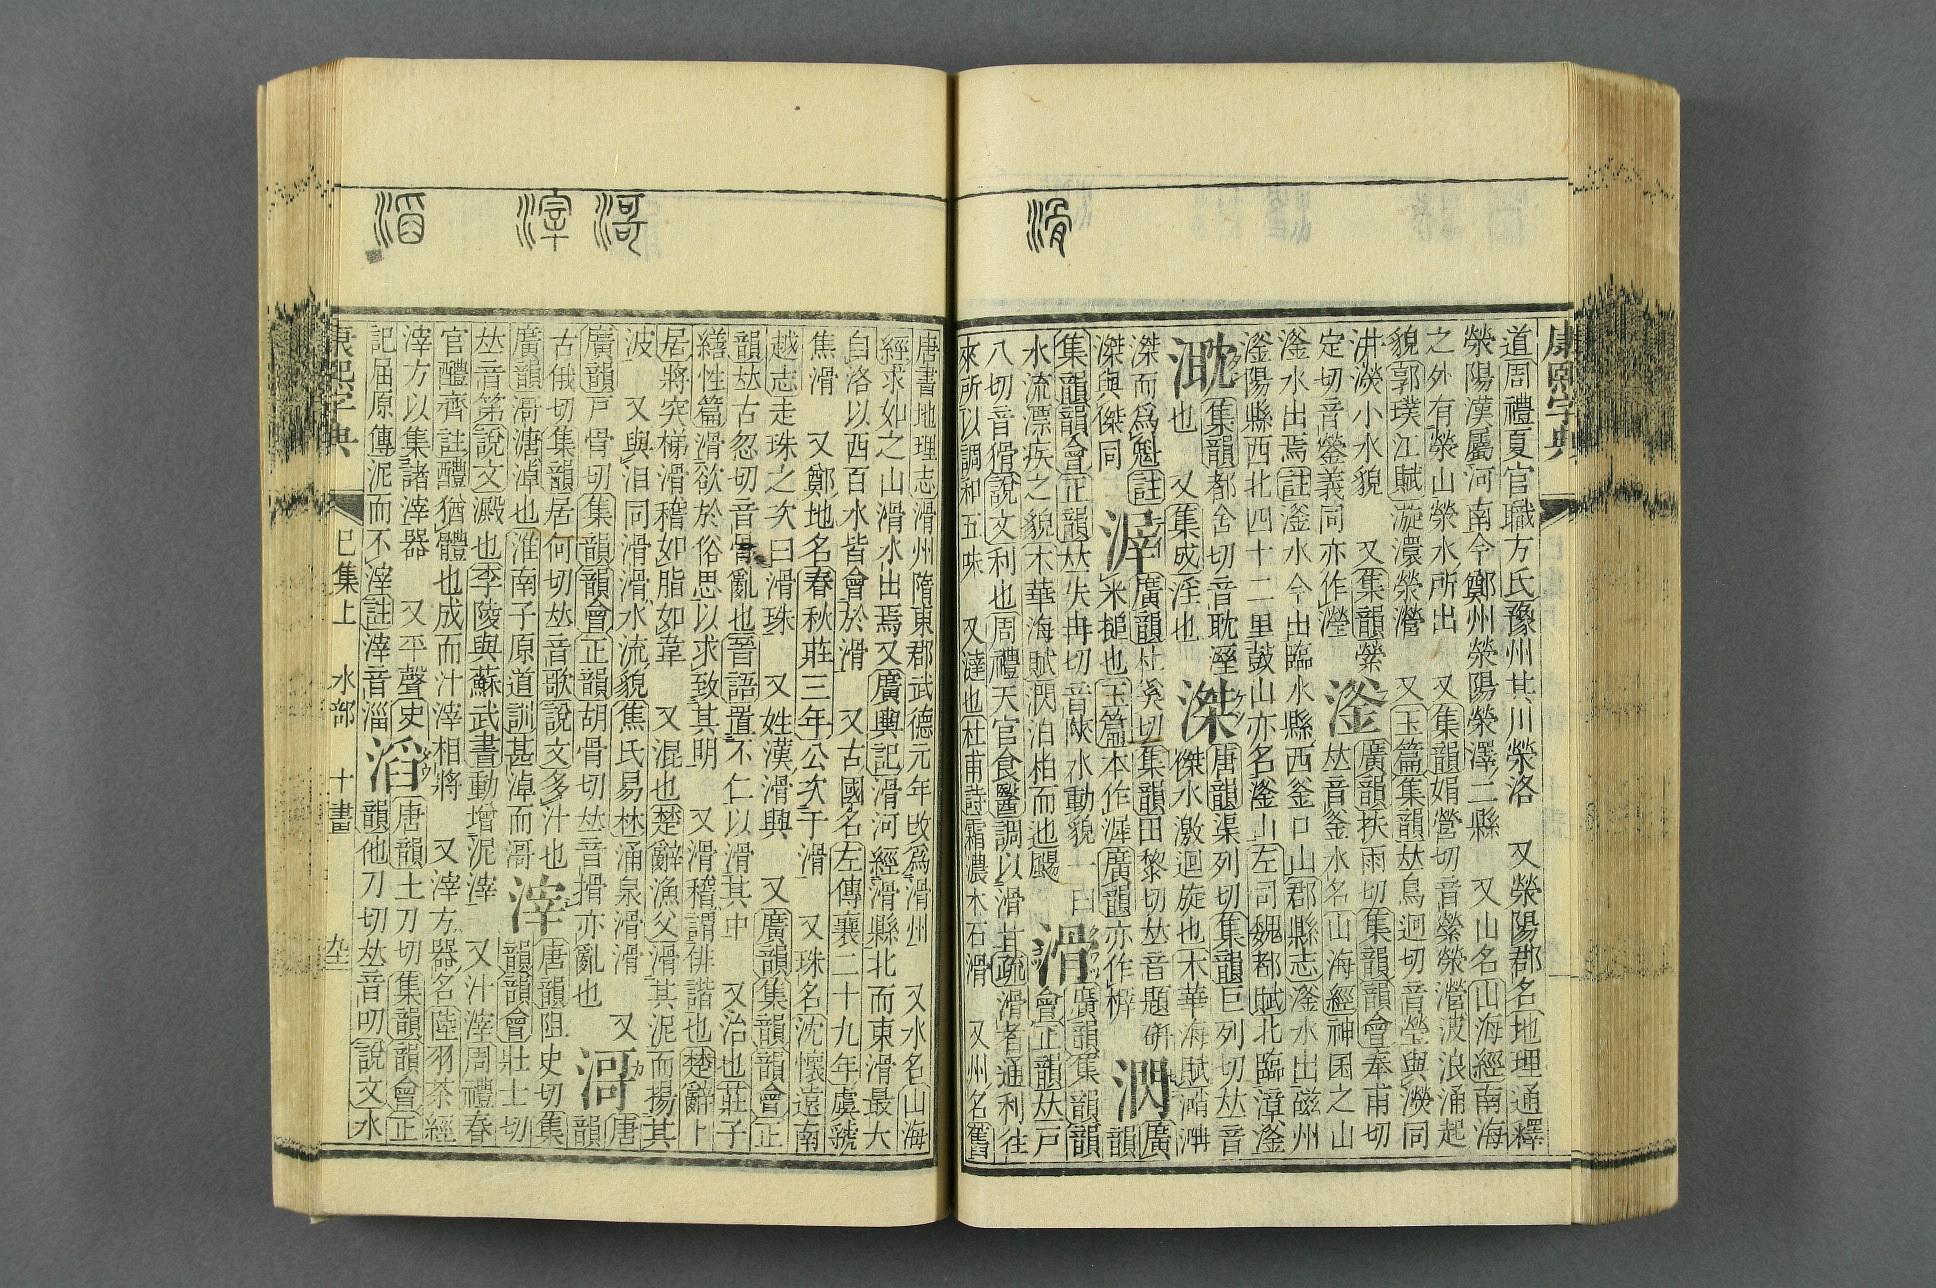 滑
康熙字典
道周禮夏官職方氏豫州其川滎洛 又滎陽郡名地理通釋
滎陽漢屬河南今鄭州滎陽滎澤二縣 又山名山海經南海
之外有滎山滎水所出 又集韻娟營切音縈滎濴波浪涌起
貌郭璞江賦漩澴滎瀯 又玉篇集韻𠀤烏迥切音瑩與濙同
汫濙小水貌 又集韻縈
定切音鎣義同亦作瀅
滏
廣韻扶雨切集韻韻會奉甫切
𠀤音釜水名山海經神囷之山
滏水出焉註滏水今出臨水縣西釜口山郡縣志滏水出磁州
滏陽縣西北四十二里鼓山亦名滏山左司魏都賦北臨漳滏
㴷
集韻都含切音耽溼
也 又集成淫也
滐
唐韻渠列切集韻巨列切𠀤音
傑水激迴旋也木華海賦㴉泋
滐而爲魁註
滐與傑同
㴿
廣韻杜奚切集韻田黎切𠀤音題研
米槌也玉篇本作㴿廣韻亦作㮛
㴸
廣
韻
集韻韻會正韻𠀤失冉切音陝水動貌 一曰
水流漂疾之貌木華海賦㴸泊柏而迆颺
滑
廣韻集韻韻
會正韻𠀤戸
八切音猾說文利也周禮天官食醫調以滑甘疏滑者通利往
來所以調和五味 又澾也杜甫詩霜濃木石滑 又州名舊
滒
滓
滔
唐書地理志滑州隋東郡武德元年改爲滑州 又水名山海
經求如之山滑水出焉又廣輿記滑河經滑縣北而東滑最大
自洛以西百水皆會於滑 又古國名左傳襄二十九年虞虢
焦滑 又鄭地名春秋莊三年公次于滑 又珠名沈懷遠南
越志走珠之次曰滑珠 又姓漢滑興 又廣韻集韻韻會正
韻𠀤古忽切音骨亂也晉語置不仁以滑其中 又治也莊子
繕性篇滑欲於俗思以求致其明 又滑稽謂俳諧也楚辭卜
居將突梯滑稽如脂如韋 又混也楚辭漁父滑其泥而揚其
波 又與汩同滑滑水流貌焦氏易林涌泉滑滑 又唐
廣韻戸骨切集韻韻會正韻胡骨切𠀤音搰亦亂也
滒
韻
古俄切集韻居何切𠀤音歌說文多汁也
廣韻滒溏淖也淮南子原道訓甚淖而滒
滓
唐韻阻史切集
韻韻會壯士切
𠀤音第說文澱也李陵與蘇武書動增泥滓 又汁滓周禮春
官醴齊註醴猶體也成而汁滓相將 又滓方器名陸羽茶經
滓方以集諸滓器 又平聲史
記屈原傳泥而不滓註滓音淄
滔
唐韻土刀切集韻韻會正
韻他刀切𠀤音叨說文水
康熙字典
巳集上 水部 十畫